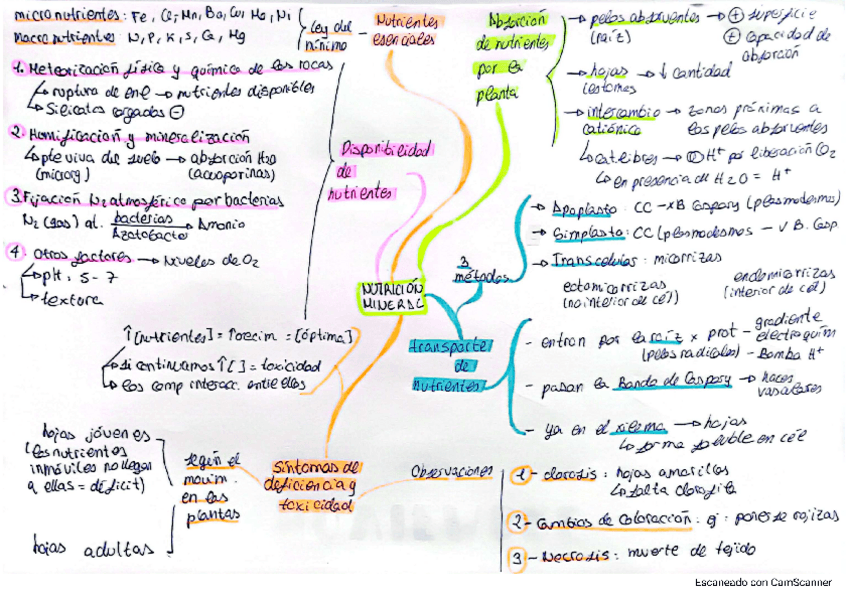 micronutrientes: Fe, Cl, Mn, Ba, Cu, Mo, Ni
macronutrientes: N, P, K, S, Ca, Mg
Ley del
mínimo
Nutrientes
esenciales
1. Meteorización física y química de las rocas
ruptura de en → nutrientes disponibles
Silicatos cargados ⊖
2. Humificación y mineralización
pte viva del suelo → absorción H2O
(microg) (acuoporinas)
3. Fijación N2 atmosférico por bacterias
N2 (gas) al. bacterias → Amonio
Azotobacter
4 Otros factores → Niveles de O2
pH: 5-7
textura
Disponibilidad
de
nutrientes
Absorción
de nutrientes
por la
planta
→ pelos absorventes → ⊕ superficie
(raíz) ⊕ capacidad de
absorción
→ hojas → ↓ cantidad
estomas
→ intercambio → zonas próximas a
catiónico los pelos absorventes
H+ por liberación CO2
en presencia de H2O = H+
NUTRICIÓN
MINERAL
3
métodos
→ Apoplasto: CC - x B Caspary (plasmodesmos)
→ Simplasto: CC (plasmodesmos - √ B. Casp
→ Transcelulas: micorrizas
ectomicorrizas endomicorrizas
(no interior de cél) (interior de cél)
transporte
de
nutrientes
- entran por la raíz x prot - gradiente
electroquím
(pelos radicales) - Bomba H+
- pasan la Banda de Caspary → haces
vasculares
- ya en el xilema → hojas
forma soluble en cél
↑[nutrientes] = ↑crecim = [óptima]
si continuamos ↑[ ] = toxicidad
los comp interacc. entre ellos
Síntomas de
deficiencia y
toxicidad
según el
movim.
en las
plantas
hojas jóvenes
(los nutrientes
inmóviles no llegan
a ellas = déficit)
hojas adultas
Observaciones
1- clorosis: hojas amarillas
falta clorofila
2- Cambios de coloración: ej: ponerse rojizas
3- Necrosis: muerte de tejido
Escaneado con CamScanner